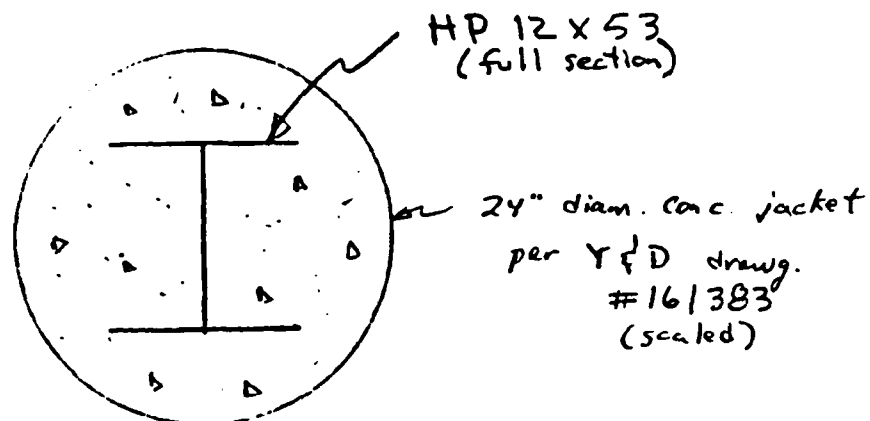 HP 12 x 53
(full section)
24" diam. conc. jacket
per Y & D drawg.
#161383
(scaled)